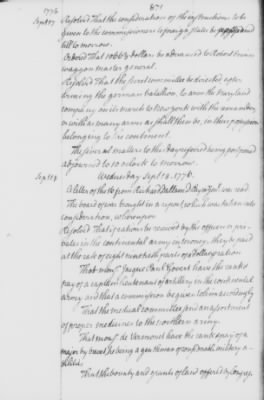 1776
871
Sept 17
Resolved That the consideration of the instructions to be
given to the commissioners to foreign states be postponed
till to morrow.
Ordered That 1066⅔ dollars be advanced to Robert
waggon master general.
Resolved That the first committee be directed after
the german battalion, to arm the Maryland
company on its march to New york with the remainder,
or with as many arms as shall then be, in their possession
belonging to the continent.
The several matters to the day referred being postponed
adjourned to 10 o'clock to morrow.
Wednesday Sept 18. 1776.
Sept 18
A letter of the from Richard Dallam D. Paym was read
The board of war brought in a report which was taken into
consideration, whereupon
Resolved That if rations be received by the officers or pri-
vates in the continental army in money, they be paid
at the rate of eight ninetieth parts of a dollar per ration
That monsr Jaques Paul Govert have the rank &
pay of a captain lieutenant of artillery in the continental
army and that a commission be given to him accordingly
That the medical committee send an assortment
of proper medicines to the northern army.
That monsr de Vermonet have the rank & pay of a
major by brevet he being a gentleman of military a-
bilities.
That the bounty and grants of land offered by Congress